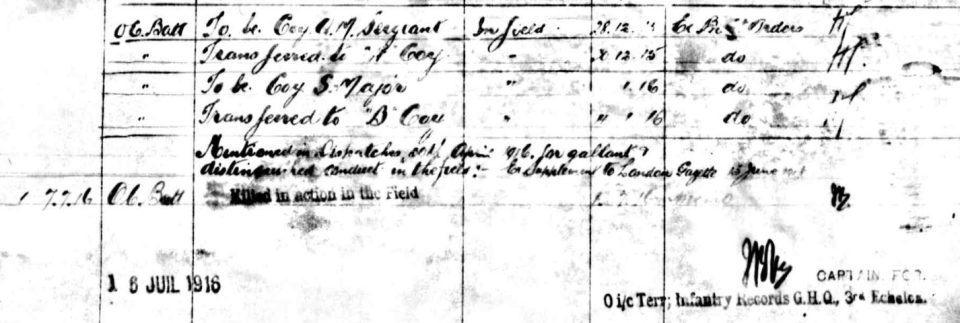 OC. Batt To be Coy Q.M. Sergeant In field 28.12. Bn Orders
" Transferred to "A" Coy " 12.15 do
" To be Coy S. Major " 1.16 do
" Transferred to "D" Coy " " 1 16 do
Mentioned in Dispatches April for gallant &
distinguished conduct in the field. Supplement to London Gazette 15 June
7.7.16 OC. Batt Killed in action in the Field
1 8 JUIL 1916
CAPTAIN, FOR.
O i/c Terr; Infantry Records G.H.Q., 3rd Echelon.